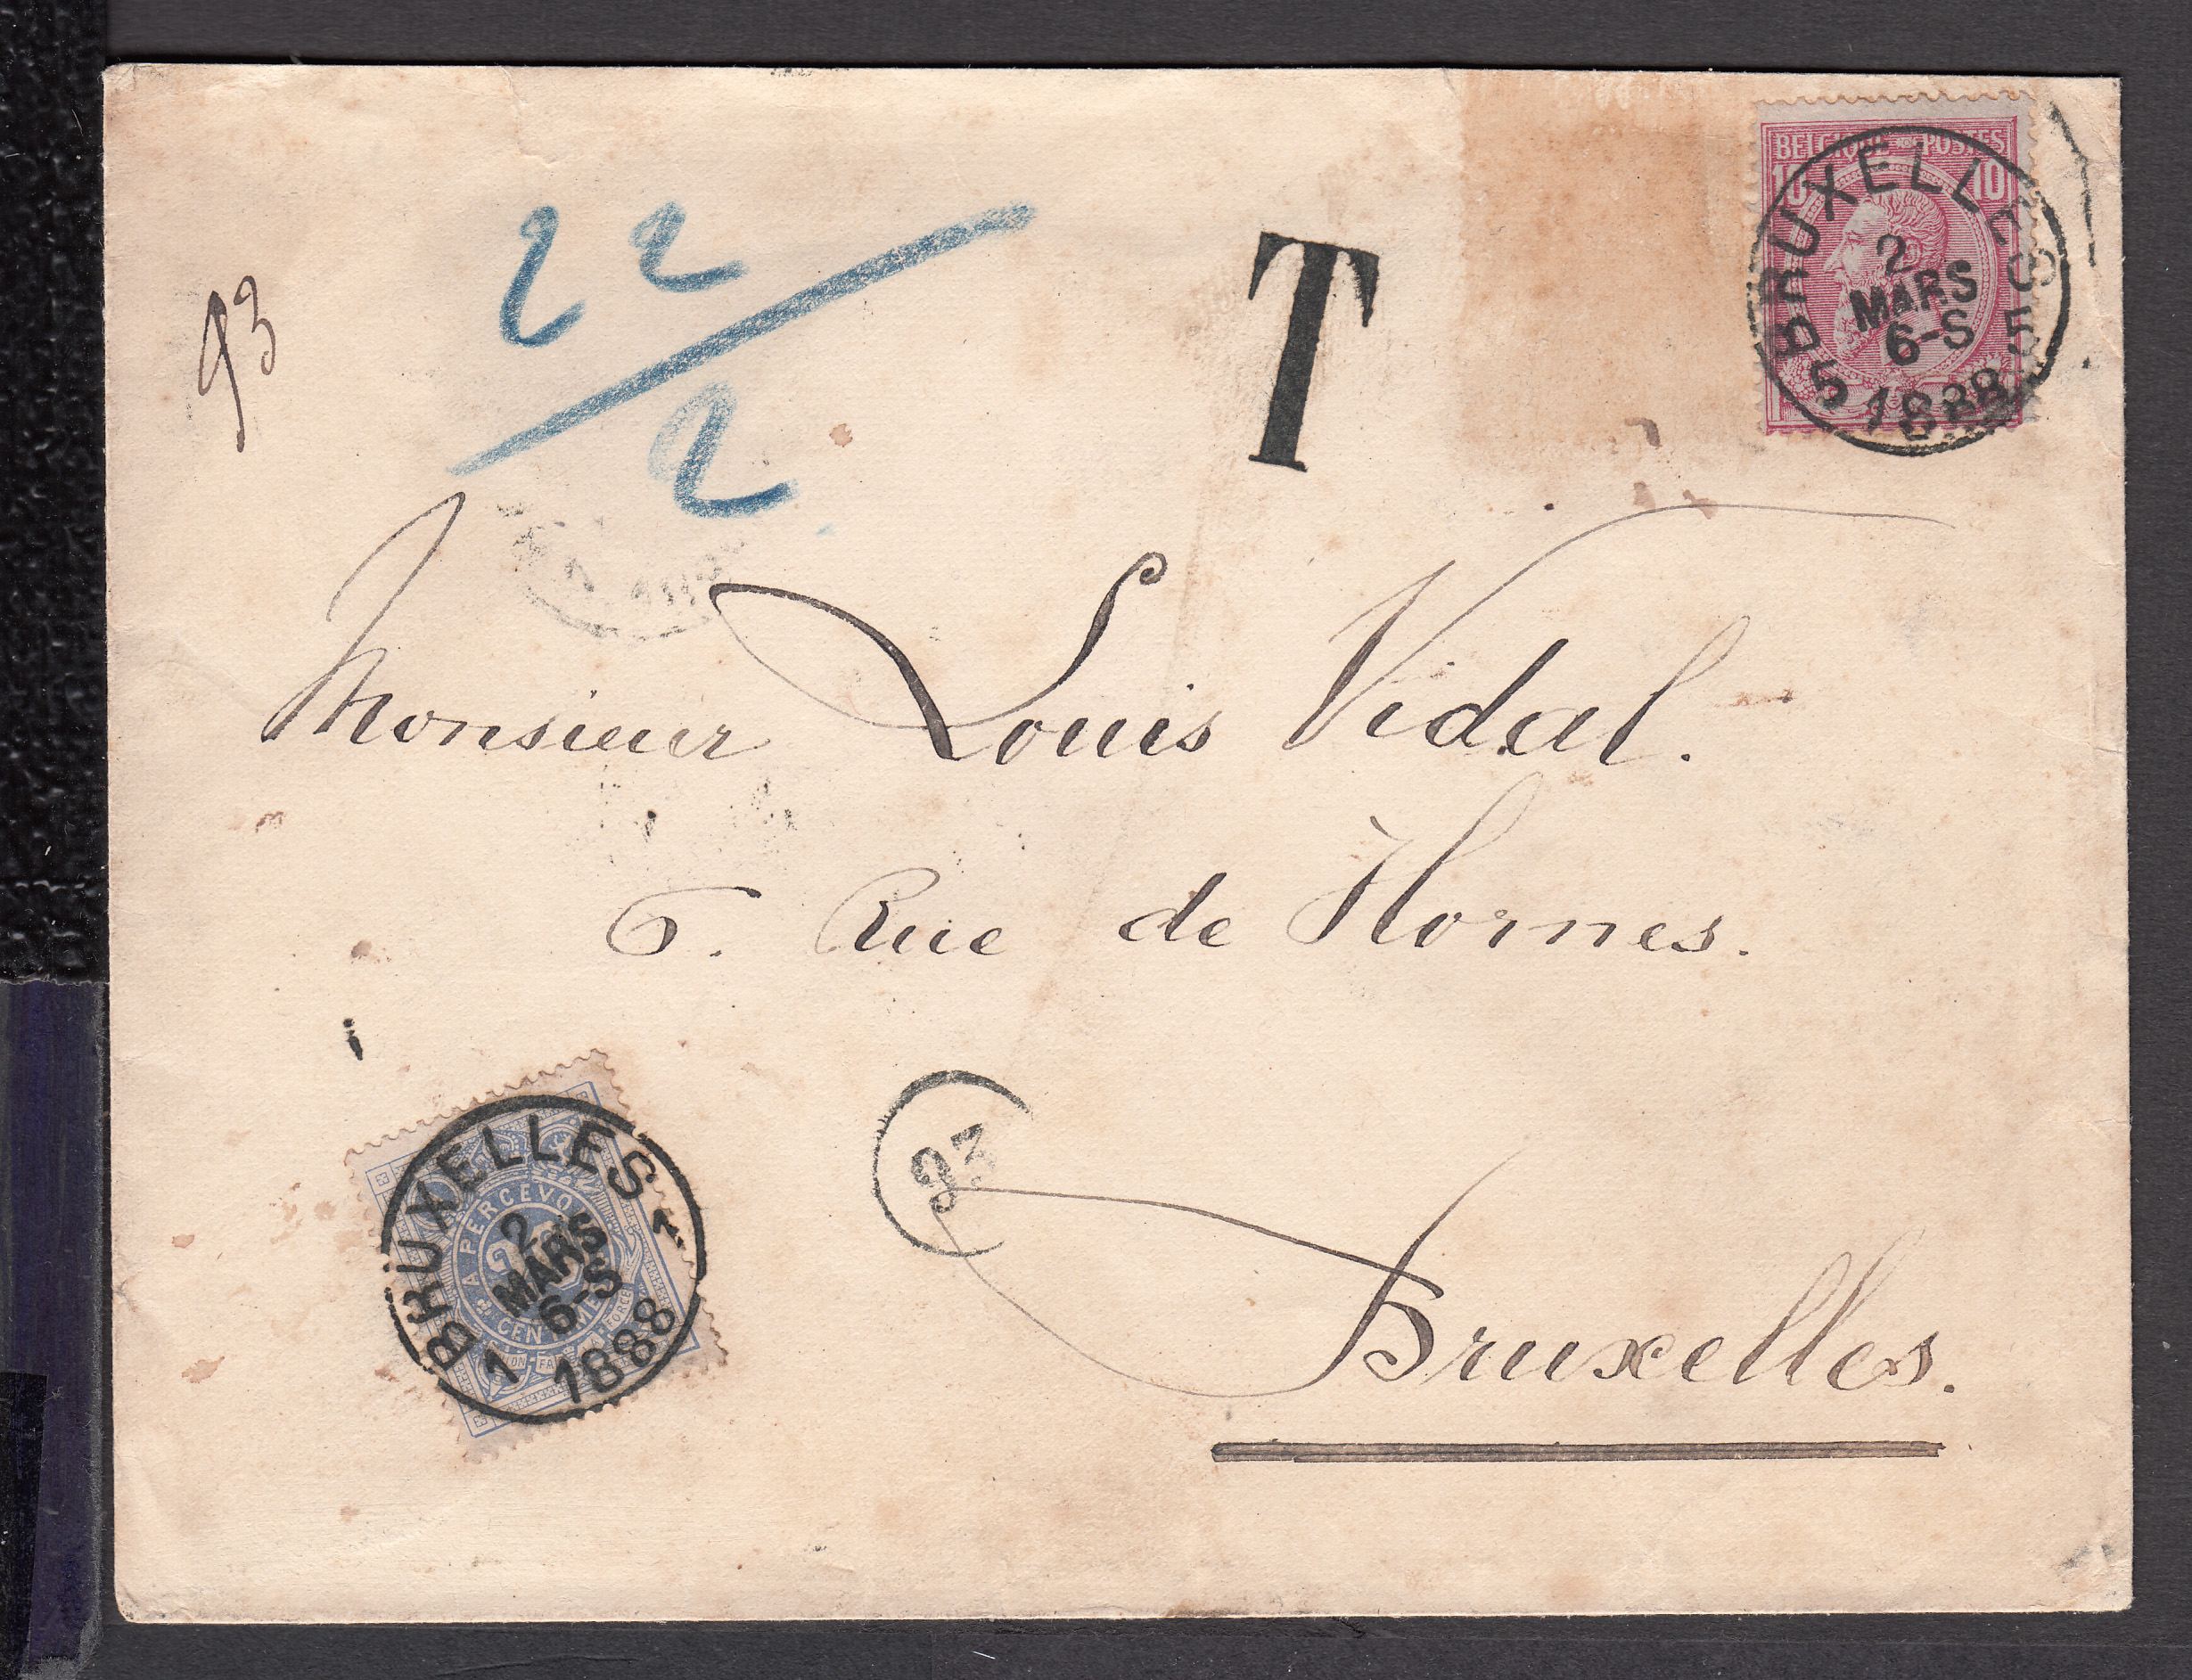 BELGIQUE POSTES
10 10
BRUXELLES 5
2
MARS
6-S
5 1888
22
2
T
93
Monsieur Louis Vidal.
6. Rue de Hornes.
93
Bruxelles.
BRUXELLES 1
2
MARS
6-S
1 1888
A PERCEVO